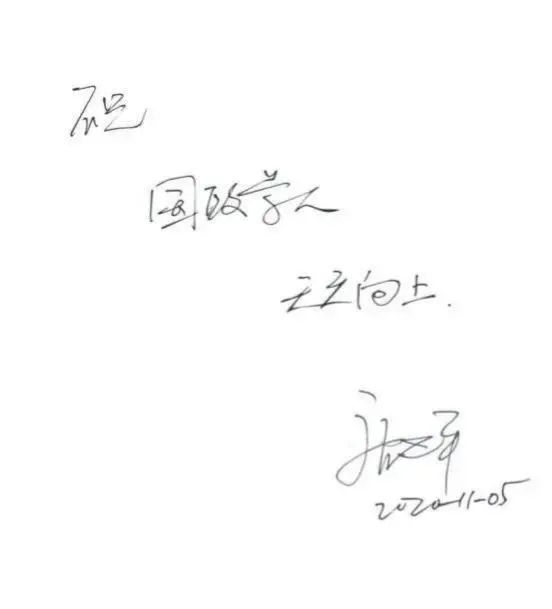 祝
国政学人
天天向上.
2020-11-05